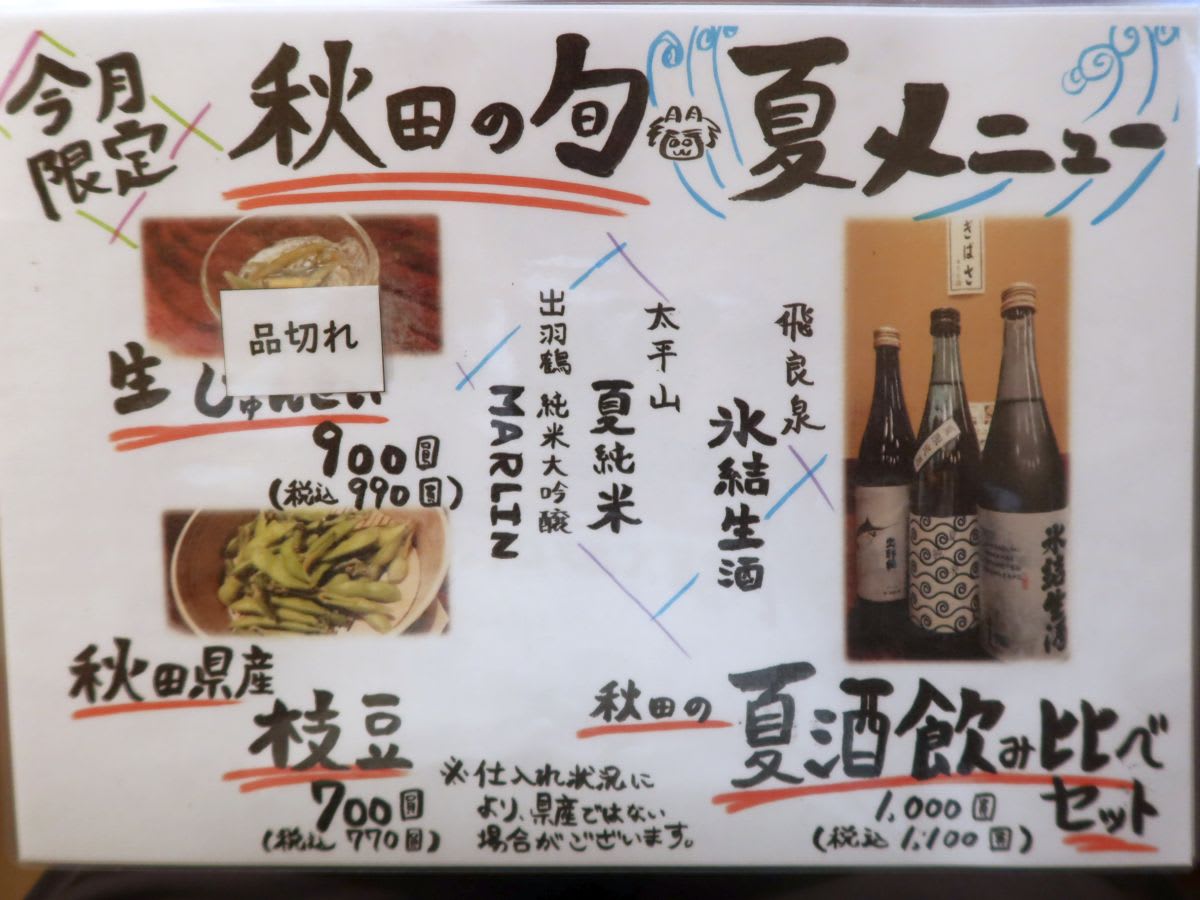 今月
限定
秋田の旬 夏メニュー
品切れ
生
900圓
(税込 990圓)
秋田県産
枝豆
700圓
(税込 770圓)
※仕入れ状況に
より、県産ではない
場合がございます。
飛良泉
氷結生酒
太平山
夏純米
出羽鶴 純米大吟醸
MARLIN
きはさ
出羽鶴
氷結生酒
秋田の
夏酒飲み比べ
セット
1,000圓
(税込 1,100圓)